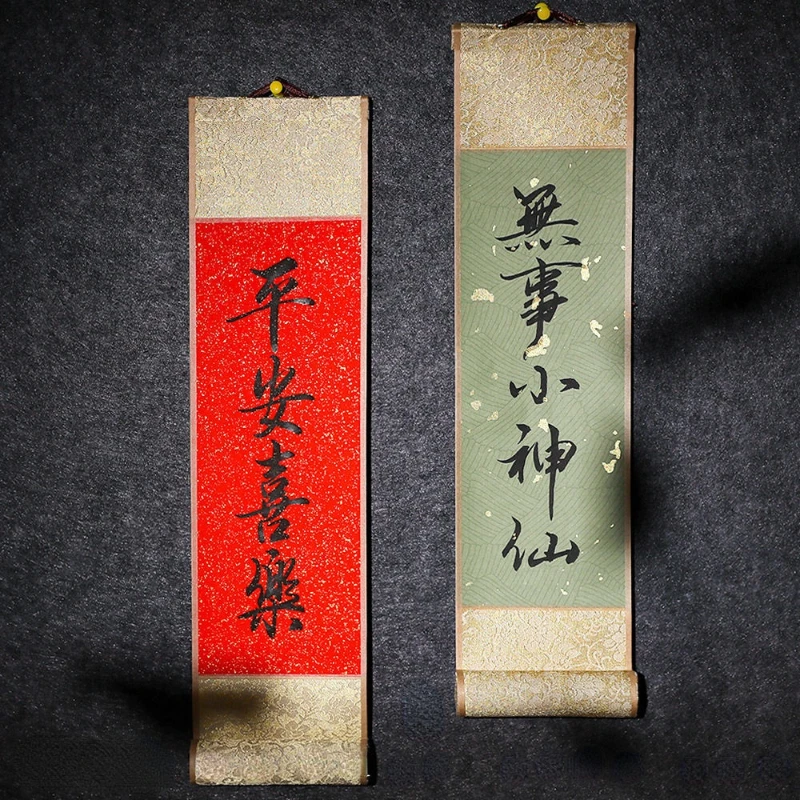 平安喜樂
無事小神仙